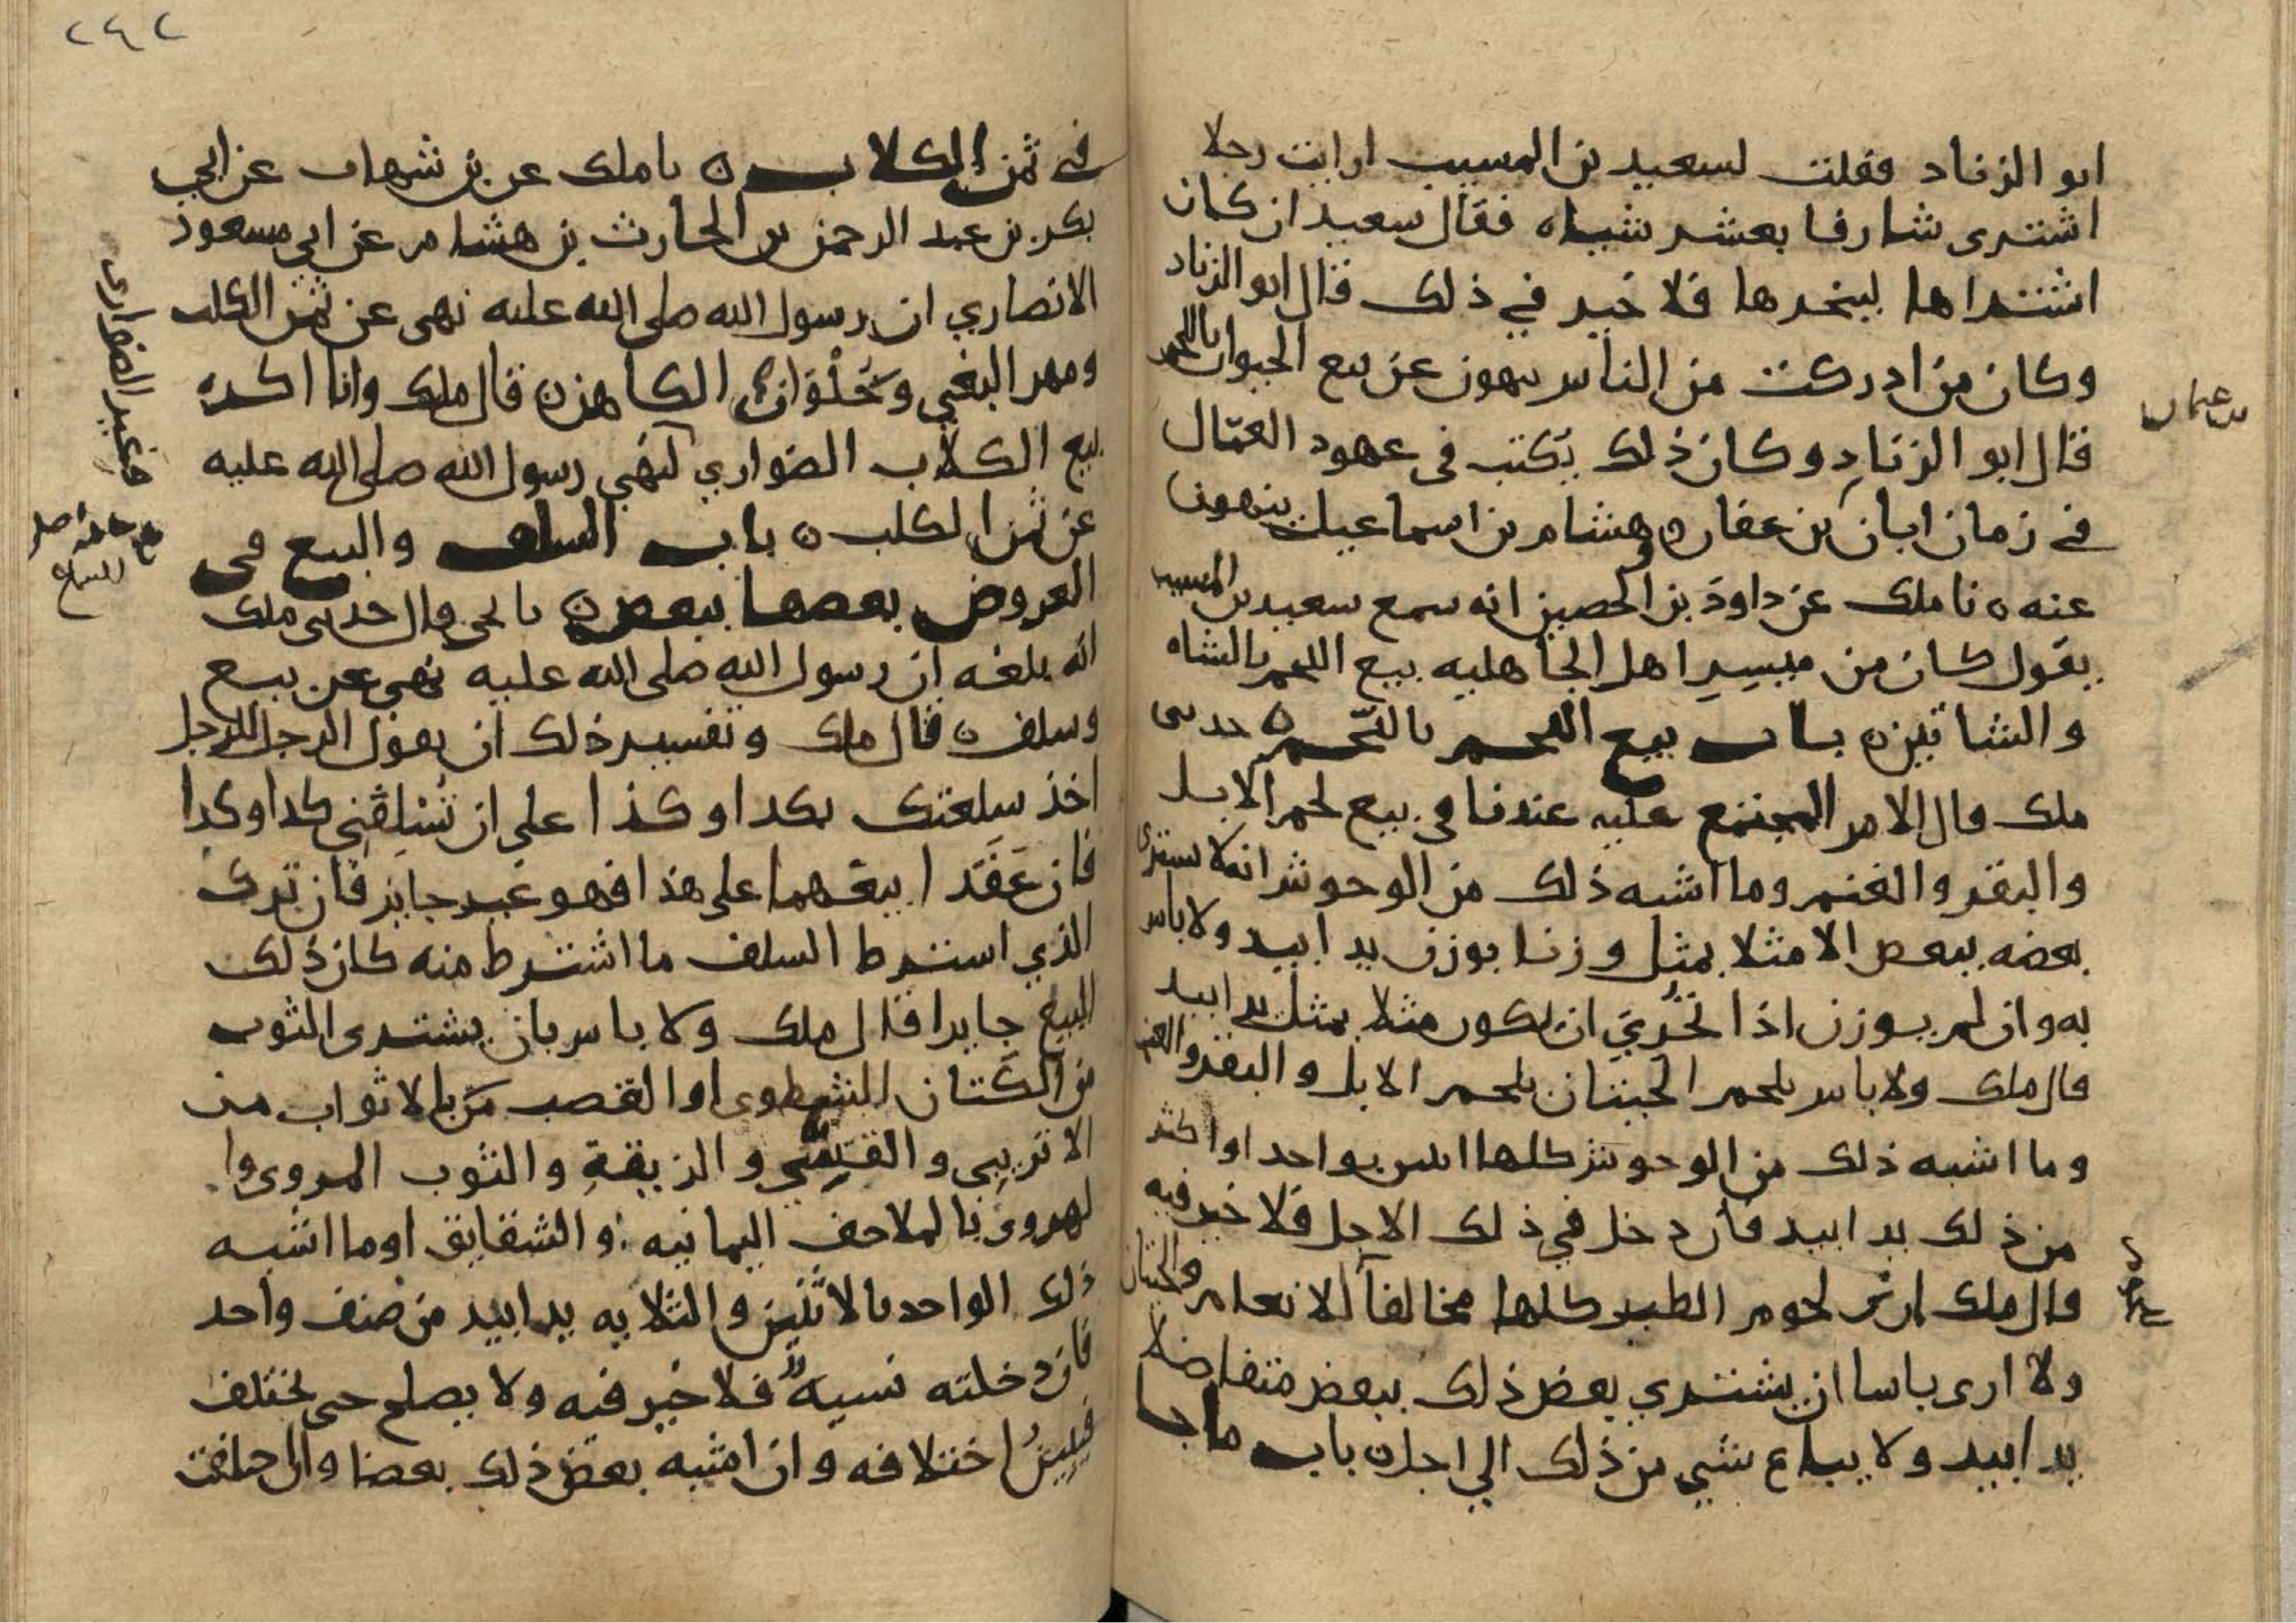 ابو الزناد فقلت لسعيد بن المسيب ارايت رجلا
اشترى شارفا بعشر شياه فقال سعيد ان كان
اشتراها لينحرها فلا خير في ذلك قال ابو الزناد
وكان من ادركت من الناس ينهون عن بيع الحيوان باللحم
قال ابو الزناد وكان ذلك يكتب في عهود العمال
في زمان ابان بن عفان وهشام بن اسماعيل ينهون
بن عثمان
عنه ه نا ملك عن داود بن الحصين انه سمع سعيد بن المسيب
يقول كان من ميسر اهل الجاهليه بيع اللحم بالشاه
والشاتين ه باب بيع اللحم باللحم ه حدثنى
ملك قال الامر المجتمع عليه عندنا في بيع لحم الابل
والبقر والغنم وما اشبه ذلك من الوحوش انه لا يشترى
بعضه ببعض الا مثلا بمثل وزنا بوزن يدا بيد ولا باس
به وان لم يوزن اذا تحري ان يكون مثلا بمثل يدا بيد
قال ملك ولا باس بلحم الحيتان بلحم الابل والبقر والغنم
وما اشبه ذلك من الوحوش كلها اثنين بواحد او اكثر
من ذلك يدا بيد فان دخل في ذلك الاجل فلا خير فيه
قال ملك ارى لحوم الطير كلها مخالفا للانعام والحيتان
ولا ارى باسا ان يشتري بعض ذلك ببعض متفاضلا
يدا بيد ولا يباع شي من ذلك الي اجل ه باب ما جا
٢٤٢
في ثمن الكلاب ه نا ملك عن بن شهاب عن ابي
بكر بن عبد الرحمن بن الحارث بن هشام عن ابي مسعود
الانصاري ان رسول الله صلى الله عليه نهى عن ثمن الكلب
ومهر البغي وحلوان الكاهن ه قال ملك وانا اكره
بيع الكلاب الضواري لنهي رسول الله صلى الله عليه
وغير الضوارى
عن ثمن الكلب ه باب السلف والبيع في
العروض بعضها ببعض ه نا يحيى قال حدثنى ملك
انه بلغه ان رسول الله صلى الله عليه نهى عن بيع
وسلف ه قال ملك وتفسير ذلك ان يقول الرجل للرجل
اخذ سلعتك بكذا وكذا على ان تسلفني كذا وكذا
فان عقدا بيعهما على هذا فهو غير جايز فان ترك
الذي اشترط السلف ما اشترط منه كان ذلك
البيع جايزا قال ملك ولا باس بان يشترى الثوب
من الكتان الشطوى او القصب بالاثواب من
الاتريبي والقسي والزيقة والثوب المروى وا
لهروى بالملاحف اليمانيه والشقايق او ما اشبه
ذلك الواحد بالاثنين والثلاثه يدا بيد من صنف واحد
فان دخلته نسيه فلا خير فيه ولا يصلح حتى يختلف
فيبين اختلافه وان اشبه بعض ذلك بعضا وان اختلفت